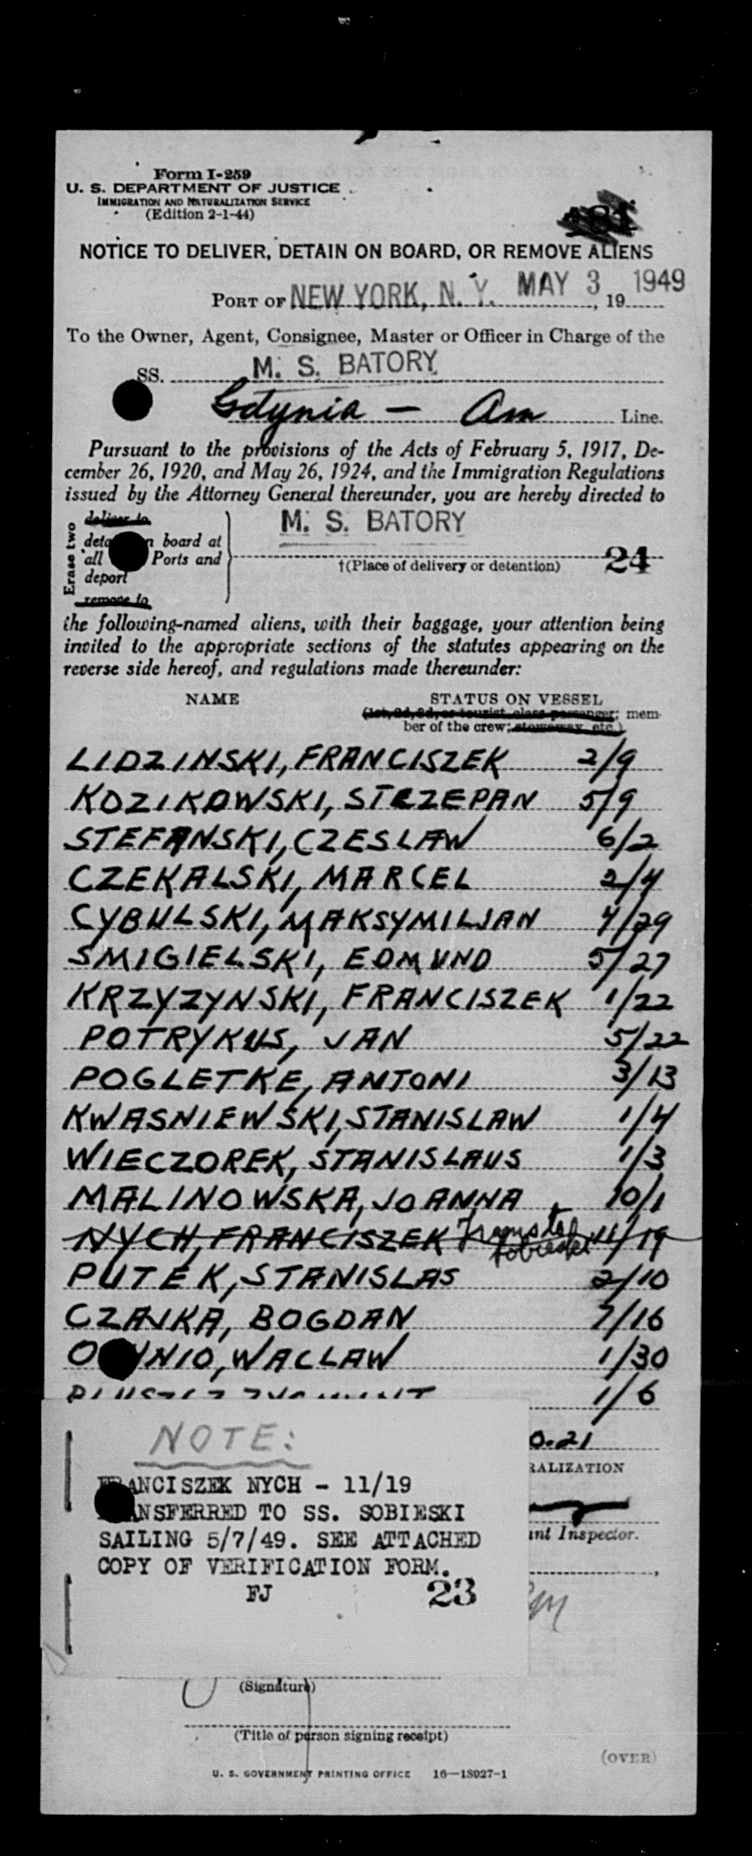 Form I-259
U. S. DEPARTMENT OF JUSTICE
IMMIGRATION AND NATURALIZATION SERVICE
(Edition 2-1-44)
NOTICE TO DELIVER, DETAIN ON BOARD, OR REMOVE ALIENS
PORT OF NEW YORK, N. Y. MAY 3, 19 1949
To the Owner, Agent, Consignee, Master or Officer in Charge of the
SS. M. S. BATORY
Gdynia - Am Line.
Pursuant to the provisions of the Acts of February 5, 1917, De-
cember 26, 1920, and May 26, 1924, and the Immigration Regulations
issued by the Attorney General thereunder, you are hereby directed to
Erase two
deliver to
board at
all Ports and
deport
remove to
M. S. BATORY
†(Place of delivery or detention) 24
the following-named aliens, with their baggage, your attention being
invited to the appropriate sections of the statutes appearing on the
reverse side hereof, and regulations made thereunder:
NAME STATUS ON VESSEL
(1st, 2d, 3d, or tourist class passenger; mem-
ber of the crew; stowaway, etc.)
LIDZINSKI, FRANCISZEK 2/9
KOZIKOWSKI, STEZEPAN 5/9
STEFANSKI, CZESLAW 6/2
CZEKALSKI, MARCEL 2/4
CYBULSKI, MAKSYMILJAN 4/29
SMIGIELSKI, EDMUND 5/27
KRZYZYNSKI, FRANCISZEK 1/22
POTRYKUS, JAN 5/22
POGLETKE, ANTONI 3/13
KWASNIEWSKI, STANISLAW 1/4
WIECZOREK, STANISLAUS 1/3
MALINOWSKA, JOANNA 10/1
NYCH, FRANCISZEK Trans to Sobieski 11/19
PUTEK, STANISLAS 2/10
CZAJKA, BOGDAN 7/16
WACLAW 1/30
1/6
NOTE:
FRANCISZEK NYCH - 11/19
TRANSFERRED TO SS. SOBIESKI
SAILING 5/7/49. SEE ATTACHED
COPY OF VERIFICATION FORM.
FJ 23
Inspector.
(Signature)
(Title of person signing receipt)
(OVER)
U. S. GOVERNMENT PRINTING OFFICE 16—18027-1